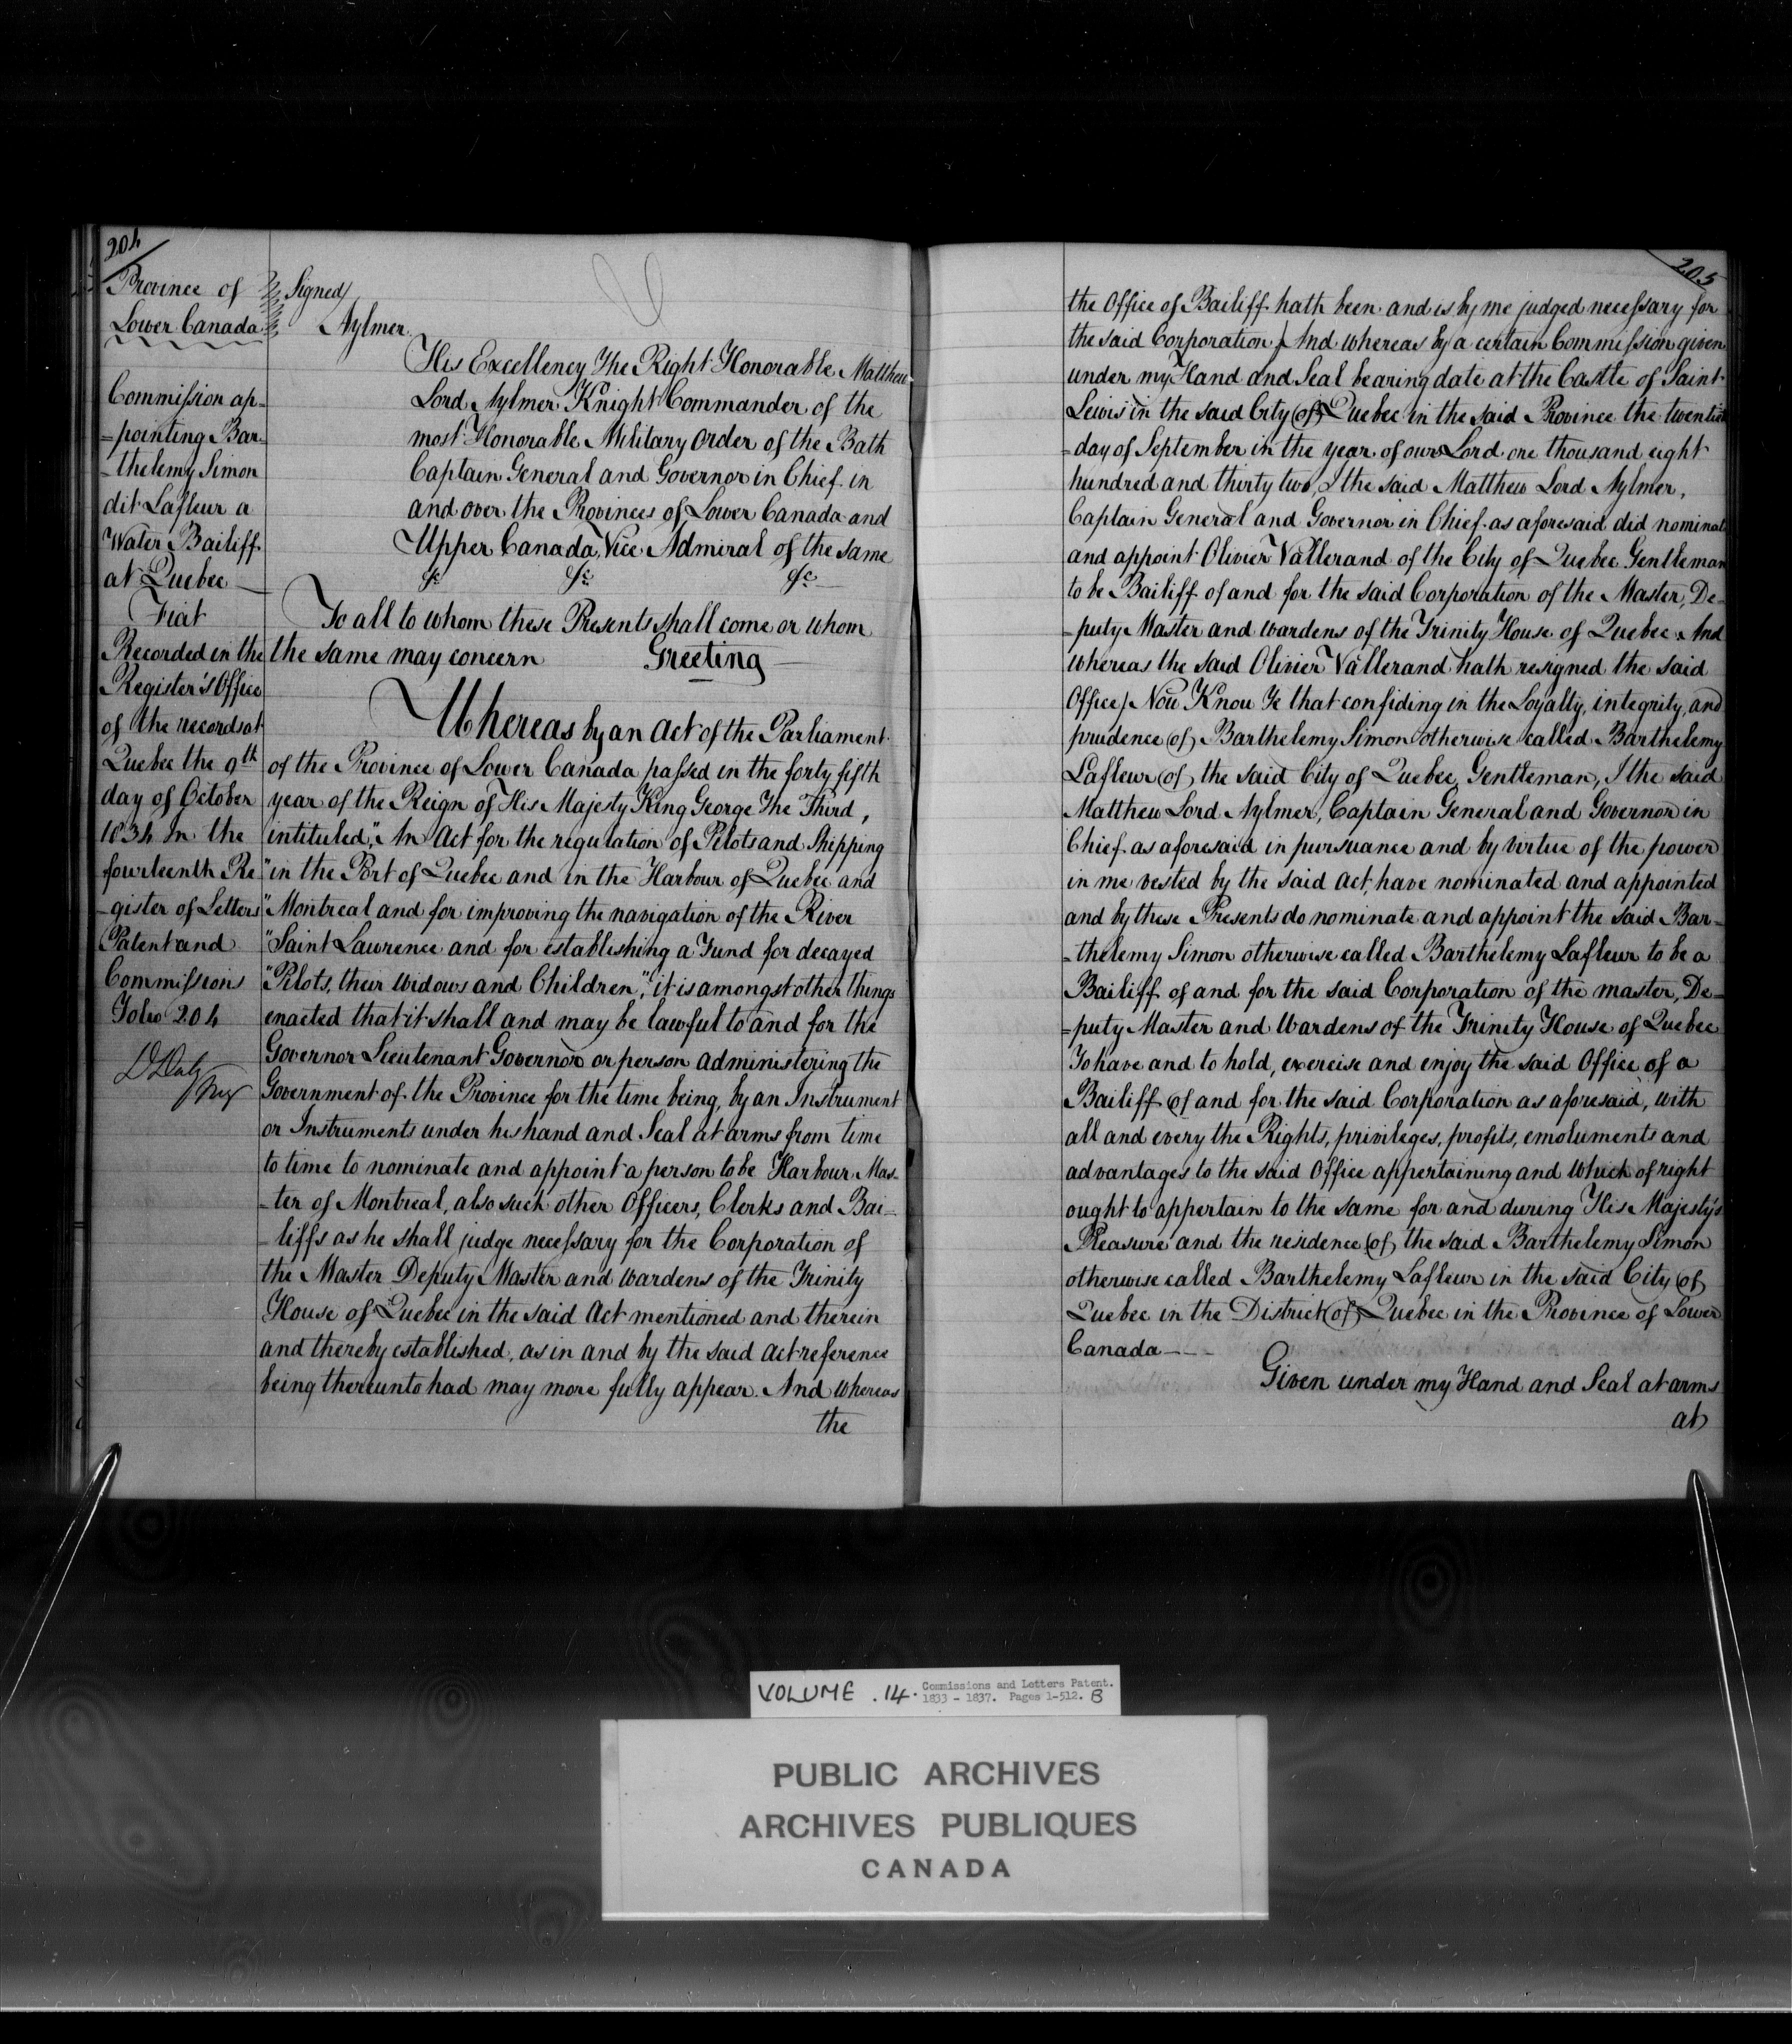 204
Province of
Lower Canada
Signed/
Aylmer
Commission ap-
-pointing Bar-
-thelemy Simon
dit Lafleur a
Water Bailiff
at Quebec
Fiat
Recorded in the
Register's Office
of the records at
Quebec the 9th
day of October
1834 In the
fourteenth Re
-gister of Letters
Patent and
Commissions
Folio 204
D Daly
Reg
His Excellency The Right Honorable Matthew
Lord Aylmer Knight Commander of the
most Honorable Military Order of the Bath
Captain General and Governor in Chief in
and over the Provinces of Lower Canada and
Upper Canada, Vice Admiral of the same
&c &c &c
To all to whom these Presents shall come or whom
the same may concern Greeting
Whereas by an Act of the Parliament
of the Province of Lower Canada passed in the forty fifth
year of the Reign of His Majesty King George The Third,
intituled, "An Act for the regulation of Pilots and Shipping
"in the Port of Quebec and in the Harbour of Quebec and
"Montreal and for improving the navigation of the River
"Saint Lawrence and for establishing a Fund for decayed
"Pilots, their Widows and Children," it is amongst other things
enacted that it shall and may be lawful to and for the
Governor Lieutenant Governor or person administering the
Government of the Province for the time being, by an Instrument
or Instruments under his hand and Seal at arms from time
to time to nominate and appoint a person to be Harbour Mas-
-ter of Montreal, also such other Officers, Clerks and Bai-
-liffs as he shall judge necessary for the Corporation of
the Master Deputy Master and Wardens of the Trinity
House of Quebec in the said Act mentioned and therein
and thereby established, as in and by the said Act reference
being thereunto had may more fully appear. And whereas
the
205
the Office of Bailiff hath been and is by me judged necessary for
the said Corporation/ And whereas by a certain Commission given
under my Hand and Seal bearing date at the Castle of Saint
Lewis in the said City of Quebec in the said Province the twentieth
-day of September in the year of our Lord one thousand eight
hundred and thirty two, I the said Matthew Lord Aylmer,
Captain General and Governor in Chief as aforesaid did nominate
and appoint Olivier Vallerand of the City of Quebec Gentleman
to be Bailiff of and for the said Corporation of the Master, De-
-puty Master and Wardens of the Trinity House of Quebec And
whereas the said Olivier Vallerand hath resigned the said
Office/ Now Know Ye that confiding in the Loyalty, integrity, and
prudence of Barthelemy Simon otherwise called Barthelemy
Lafleur of the said City of Quebec, Gentleman, I the said
Matthew Lord Aylmer, Captain General and Governor in
Chief as aforesaid in pursuance and by virtue of the power
in me vested by the said Act, have nominated and appointed
and by these Presents do nominate and appoint the said Bar-
-thelemy Simon otherwise called Barthelemy Lafleur to be a
Bailiff of and for the said Corporation of the Master, De-
-puty Master and Wardens of the Trinity House of Quebec
To have and to hold, exercise and enjoy the said Office of a
Bailiff of and for the said Corporation as aforesaid, with
all and every the Rights, privileges, profits, emoluments and
advantages to the said Office appertaining and which of right
ought to appertain to the same for and during His Majesty's
Pleasure and the residence of the said Barthelemy Simon
otherwise called Barthelemy Lafleur in the said City of
Quebec in the District of Quebec in the Province of Lower
Canada
Given under my Hand and Seal at arms
at
VOLUME .14. Commissions and Letters Patent.
1833 - 1837. Pages 1-512. B
PUBLIC ARCHIVES
ARCHIVES PUBLIQUES
CANADA